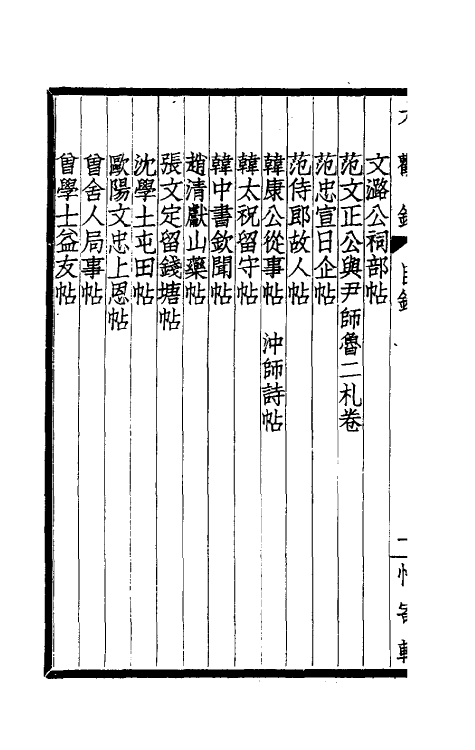 大觀錄 目錄 二
文潞公祠部帖
范文正公與尹師魯二札卷
范忠宣日企帖
范侍郎故人帖
韓康公從事帖 沖師詩帖
韓太祝留守帖
韓中書欽聞帖
趙清獻山藥帖
張文定留錢塘帖
沈學士屯田帖
歐陽文忠上恩帖
曾舍人局事帖
曾學士益友帖